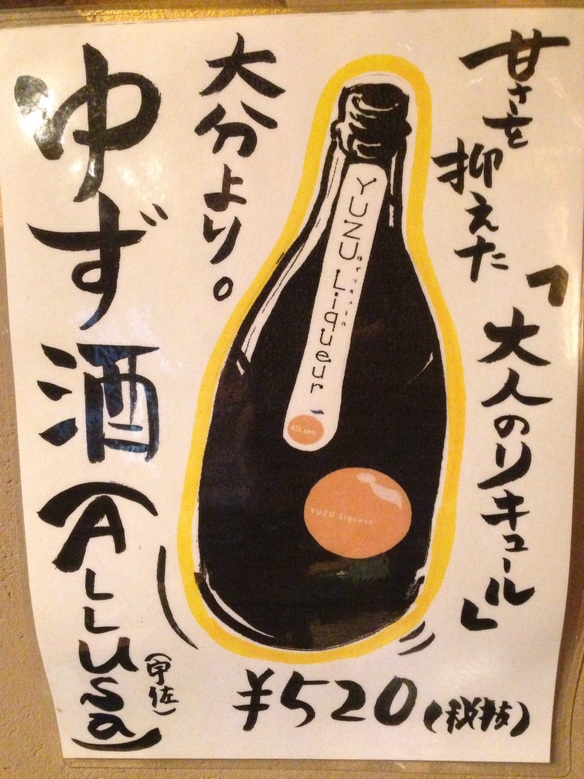 甘さを
抑えた
「大人のリキュール」
大分より。
ゆず酒
(ALLUSa)
(宇佐)
YUZU Liqueur
YUZU Liqueur
¥520(税抜)